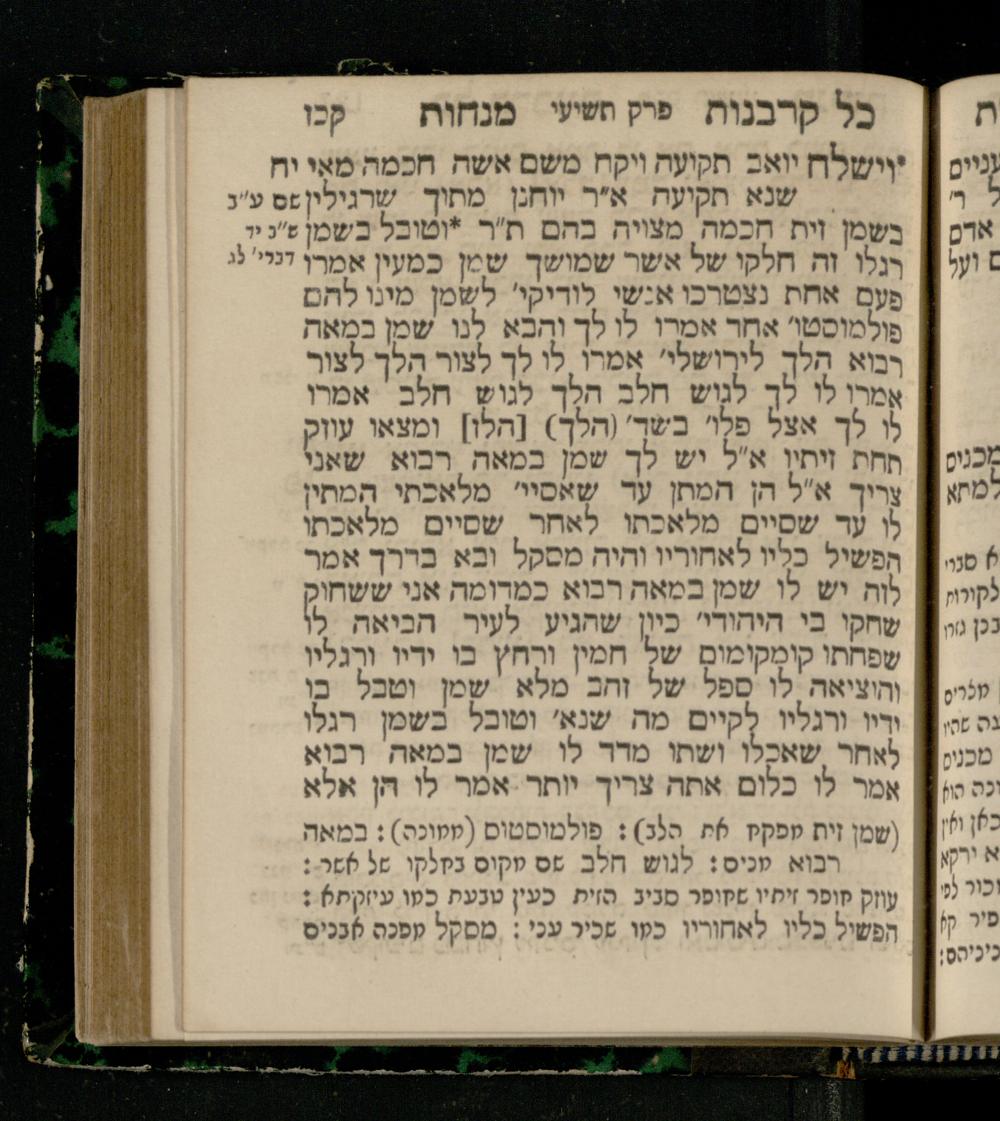 כל קרבנות פרק תשיעי מנחות קכז
*וישלח יואב תקועה ויקח משם אשה חכמה מאי יח
שנא תקועה א״ר יוחנן מתוך שרגילין שם ע״ב
בשמן זית חכמה מצויה בהם ת״ר *וטובל בשמן ש״ב יד
רגלו זה חלקו של אשר שמושך שמן כמעין אמרו דברי׳ לג
פעם אחת נצטרכו אנשי לודיקי׳ לשמן מינו להם
פולמוסטו׳ אחד אמרו לו לך והבא לנו שמן במאה
רבוא הלך לירושלי׳ אמרו לו לך לצור הלך לצור
אמרו לו לך לגוש חלב הלך לגוש חלב אמרו
לו לך אצל פלו׳ בשד׳ (הלך) [הלז] ומצאו עוזק
תחת זיתיו א״ל יש לך שמן במאה רבוא שאני
צריך א״ל הן המתן עד שאסיי׳ מלאכתי המתין
לו עד שסיים מלאכתו לאחר שסיים מלאכתו
הפשיל כליו לאחוריו והיה מסקל ובא בדרך אמר
לזה יש לו שמן במאה רבוא כמדומה אני ששחוק
שחקו בי היהודי׳ כיון שהגיע לעיר הביאה לו
שפחתו קומקומום של חמין ורחץ בו ידיו ורגליו
והוציאה לו ספל של זהב מלא שמן וטבל בו
ידיו ורגליו לקיים מה שנא׳ וטובל בשמן רגלו
לאחר שאכלו ושתו מדד לו שמן במאה רבוא
אמר לו כלום אתה צריך יותר אמר לו הן אלא
(שמן זית מפקח את הלב): פולמוסטוס (ממונה): במאה
רבוא מנים: לגוש חלב שם מקום בחלקו של אשר:
עוזק חופר זיתיו שחופר סביב הזית כעין טבעת כמו עיזקתא:
הפשיל כליו לאחוריו כמו שכיר עני: מסקל מפנה אבנים
ת
עניים
ל ר׳
אדם
ם ועל
מכנים
למתא
א סברי
לקירות
בכן גזרו
מצרים
מכנים
וכה הוא
כאן ואין
א ירקא
וכור לפי
פיר קא
כיכיהם: